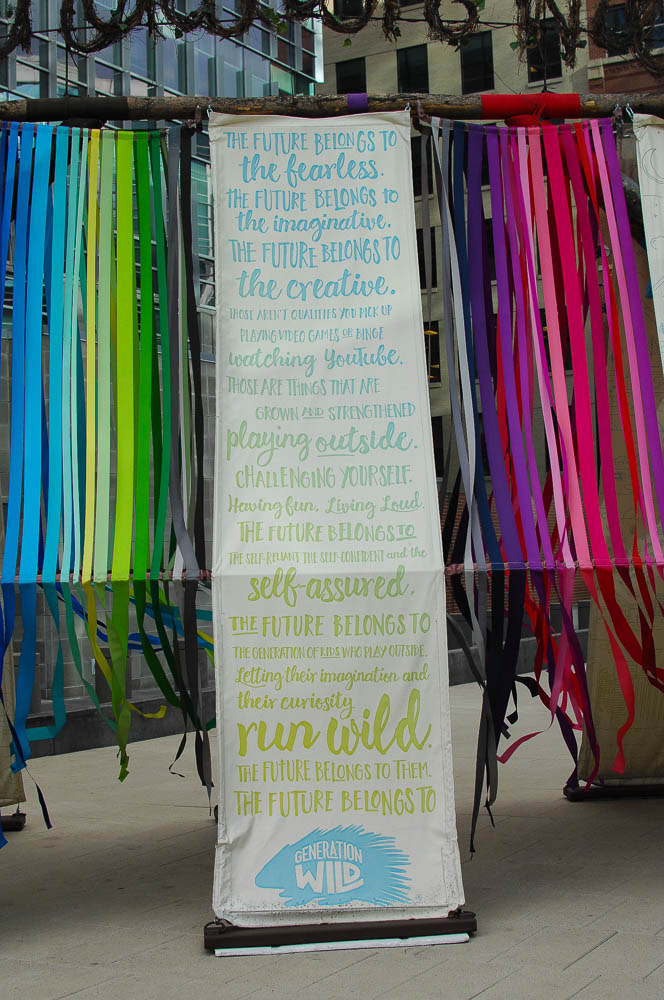 THE FUTURE BELONGS TO
the fearless.
THE FUTURE BELONGS TO
the imaginative.
THE FUTURE BELONGS TO
the creative.
THOSE AREN'T QUALITIES YOU PICK UP
PLAYING VIDEO GAMES OR BINGE
watching YouTube.
THOSE ARE THINGS THAT ARE
GROWN AND STRENGTHENED
playing outside.
CHALLENGING YOURSELF.
Having fun. Living Loud.
THE FUTURE BELONGS TO
THE SELF-RELIANT THE SELF-CONFIDENT and the
self-assured.
THE FUTURE BELONGS TO
THE GENERATION OF KIDS WHO PLAY OUTSIDE.
Letting their imagination and
their curiosity
run wild.
THE FUTURE BELONGS TO THEM.
THE FUTURE BELONGS TO
GENERATION
WILD